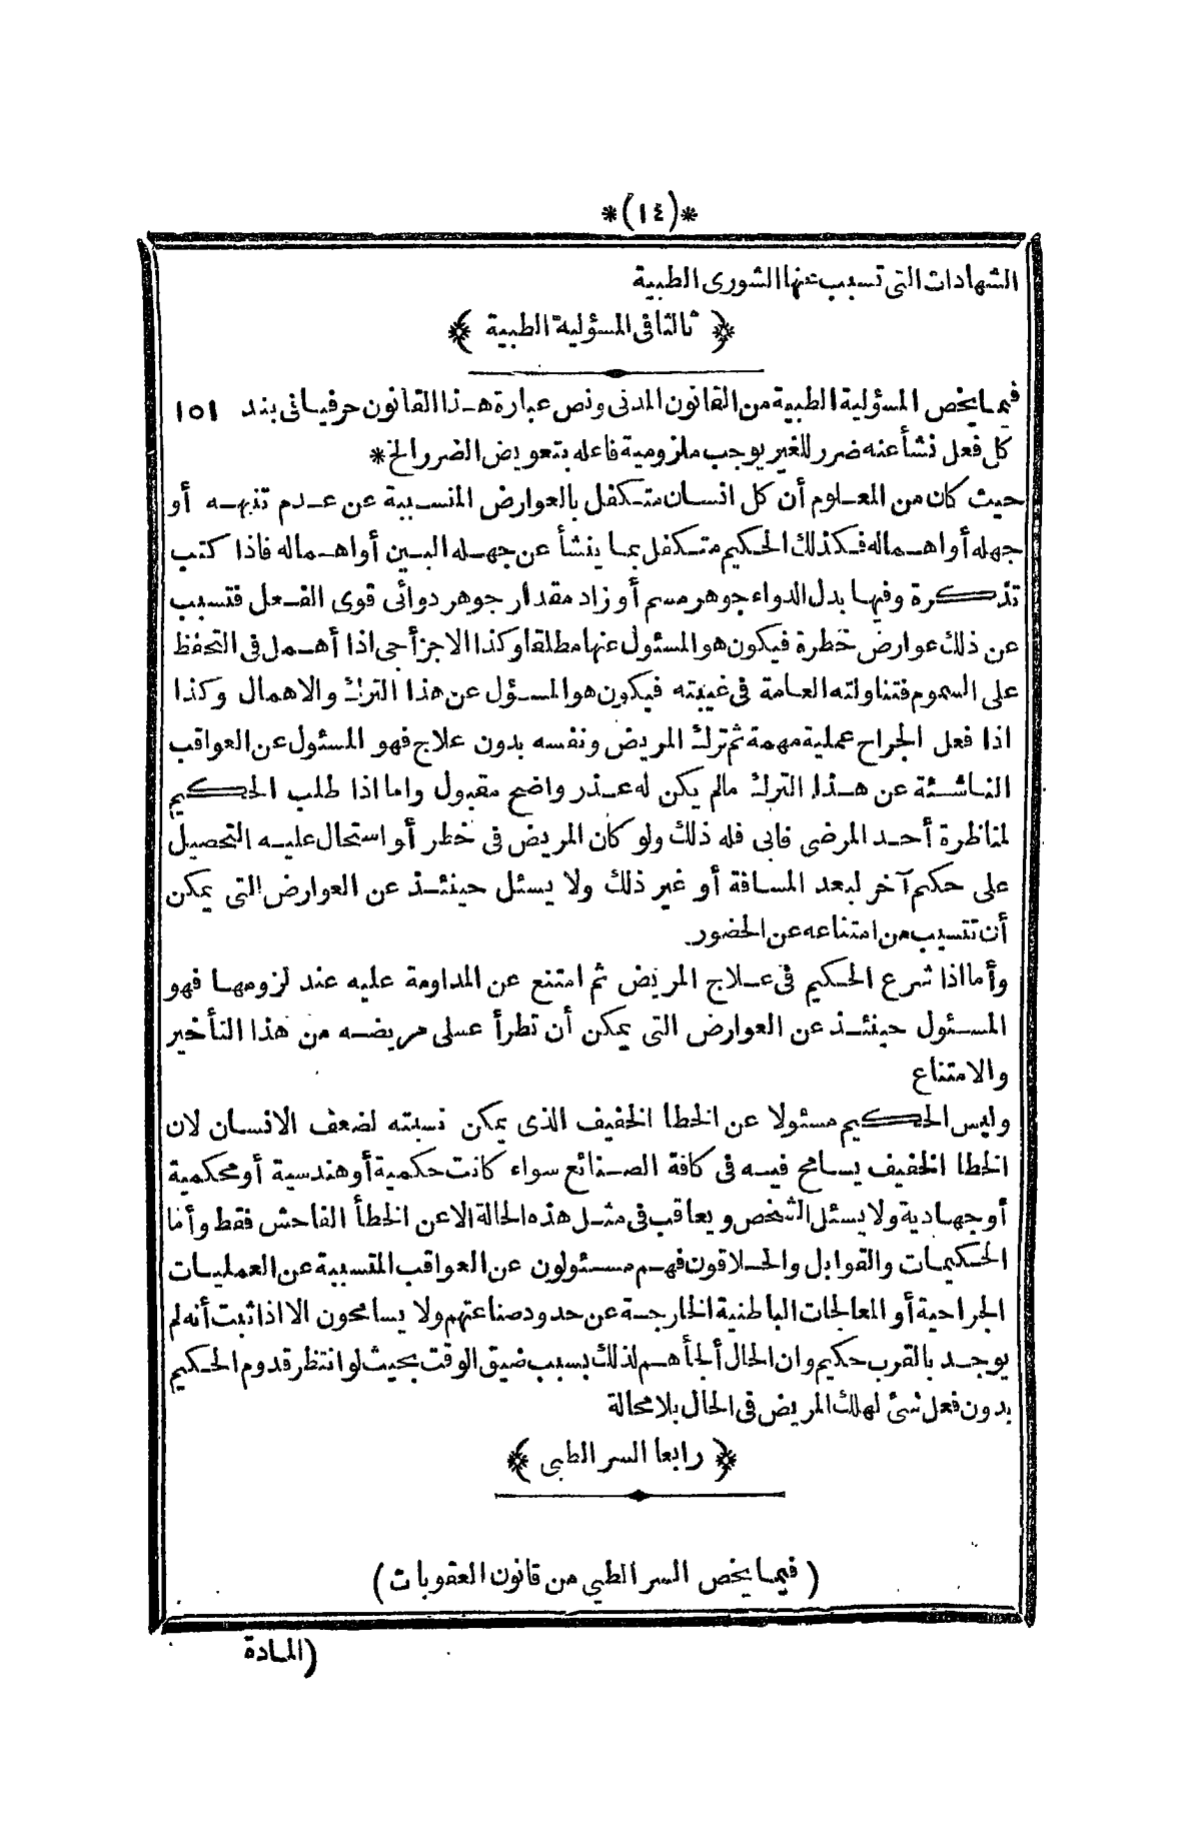 *(١٤)*
الشهادات التى تسبب عنها الشورى الطبية
﴿ ثالثا فى المسؤلية الطبية ﴾
فيما يخص المسؤلية الطبية من القانون المدنى ونص عبارة هذا القانون حرفيا فى بند ١٥١
كل فعل نشأ عنه ضرر للغير يوجب ملزومية فاعله بتعويض الضرر الخ *
حيث كان من المعلوم أن كل انسان متكفل بالعوارض المتسببة عن عدم تنبهه أو
جهله أو اهماله فكذلك الحكيم متكفل بما ينشأ عن جهله البين أو اهماله فاذا كتب
تذكرة وفيها بدل الدواء جوهر مسم أو زاد مقدار جوهر دوائى قوى الفعل فتسبب
عن ذلك عوارض خطرة فيكون هو المسئول عنها مطلقا وكذا الاجزأجى اذا أهمل فى التحفظ
على السموم فتناولته العامة فى غيبته فيكون هو المسؤل عن هذا الترك والاهمال وكذا
اذا فعل الجراح عملية مهمة ثم ترك المريض ونفسه بدون علاج فهو المسئول عن العواقب
الناشئة عن هذا الترك مالم يكن له عذر واضح مقبول واما اذا طلب الحكيم
لمناظرة أحد المرضى فابى فله ذلك ولو كان المريض فى خطر أو استحال عليه التحصيل
على حكيم آخر لبعد المسافة أو غير ذلك ولا يسئل حينئذ عن العوارض التى يمكن
أن تتسبب من امتناعه عن الحضور.
وأما اذا شرع الحكيم فى علاج المريض ثم امتنع عن المداومة عليه عند لزومها فهو
المسئول حينئذ عن العوارض التى يمكن أن تطرأ على مريضه من هذا التأخير
والامتناع
وليس الحكيم مسئولا عن الخطا الخفيف الذى يمكن نسبته لضعف الانسان لان
الخطا الخفيف يسامح فيه فى كافة الصنائع سواء كانت حكمية أو هندسية أو محكمية
أو جهادية ولا يسئل الشخص ويعاقب فى مثل هذه الحالة الا عن الخطأ الفاحش فقط وأما
الحكيمات والقوابل والحلاقون فهم مسئولون عن العواقب المتسببة عن العمليات
الجراحية أو المعالجات الباطنية الخارجة عن حدود صناعتهم ولا يسامحون الا اذا ثبت أنه لم
يوجد بالقرب حكيم وان الحال ألجأهم لذلك بسبب ضيق الوقت بحيث لو انتظر قدوم الحكيم
بدون فعل شئ لهلك المريض فى الحال بلا محالة
﴿ رابعا السر الطبى ﴾
( فيما يخص السر الطبي من قانون العقوبات )
(المادة